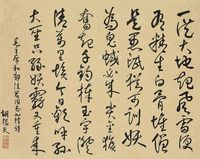 一從大地起風雷便
有精生白骨堆僧
是愚氓猶可訓妖
為鬼蜮必成災金猴
奮起千鈞棒玉宇澄
清萬里埃今日歡呼孫
大聖只緣妖霧又重來
毛主席和郭沫若同志七律詩